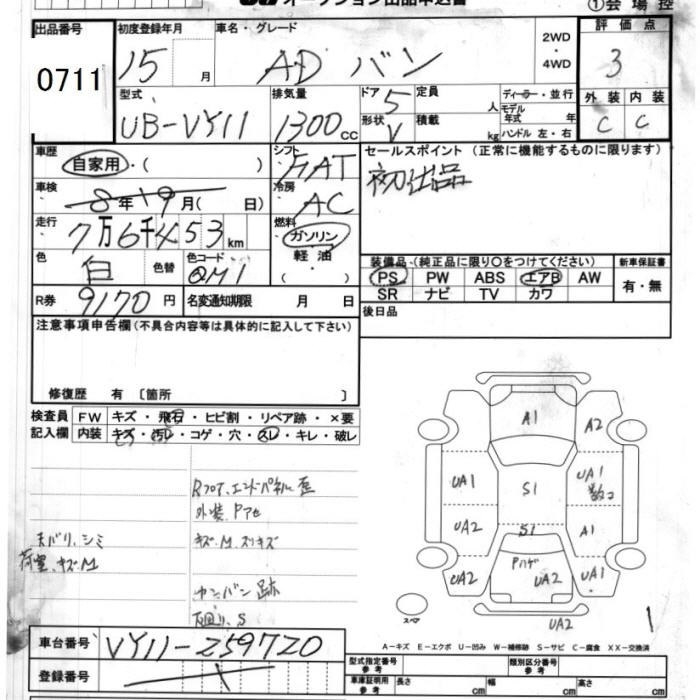 オークション出品申込書
①会場控
出品番号
初度登録年月
車名・グレード
2WD
・
4WD
評価点
0711
15 月
AD バン
3
型式
排気量
ドア
定員
ディーラー・並行
外装 内装
UB-VY11
1300 cc
5
人
モデル
年式 年
C C
形状
V
積載
kg
ハンドル 左・右
車歴
自家用・( )
シフト
FAT
セールスポイント (正常に機能するものに限ります)
初出品
車検
8年19月( 日)
冷房
AC
走行
7万6千453km
燃料
ガソリン
軽油
( )
色
白
色替
色コード
QM1
装備品(純正品に限り○をつけてください)
新車保証書
PS PW ABS エアB AW
SR ナビ TV カワ
有・無
R券
9170円
名変通知期限 月 日
後日品
注意事項申告欄(不具合内容等は具体的に記入して下さい)
修復歴 有 〔箇所 〕
検査員
記入欄
FW キズ・飛石・ヒビ割・リペア跡・×要
内装 キズ・汚レ・コゲ・穴・スレ・キレ・破レ
Rフロア、エンドパネル歪
外装、Pアセ
キズM、スリキズ
天バリ、シミ
荷室、キズM
カンバン跡
下回り、S
A1
A2
UA1
S1
UA1
UA2
S1
A1
UA2
Pハゲ
UA2
UA1
スペア
UA2
1
A-キズ E-エクボ U-凹み W-補修跡 S-サビ C-腐食 XX-交換済
車台番号
VY11-259720
登録番号
型式指定番号
参考
類別区分番号
参考
車庫証明用
参考
長さ cm
幅 cm
高さ cm